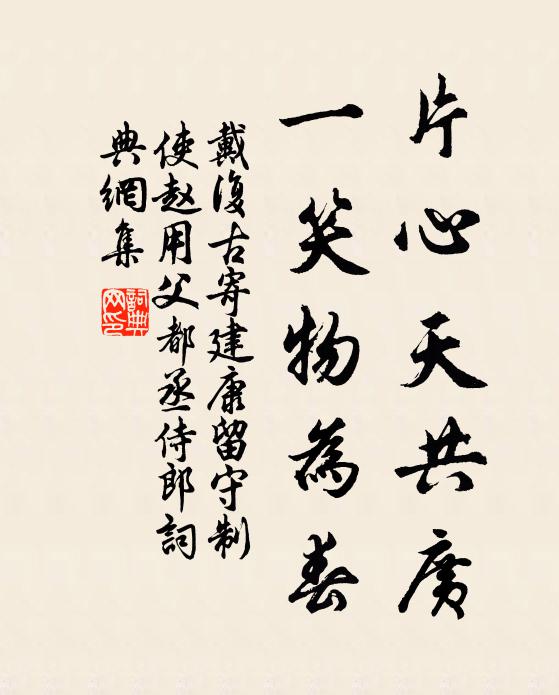 片心天共广
一笑物為春
戴復古寄建康留守制
使赵用父都丞侍郎詞
典網集
詞典网印